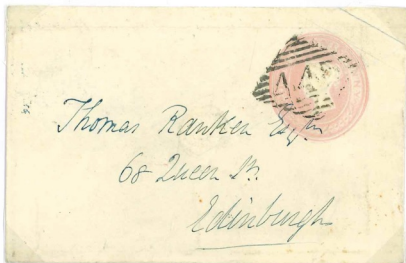 Thomas Ranken Esqr
68 Queen St.
Edinburgh